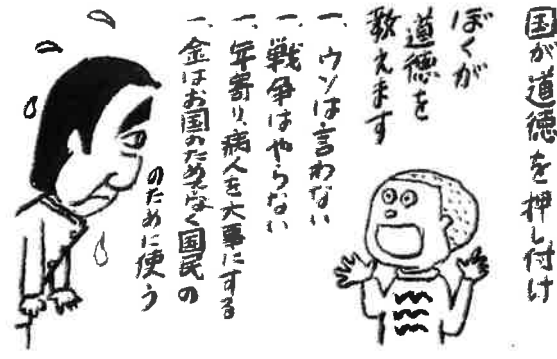 国が道徳を押し付け
ぼくが
道徳を
教えます
一、ウソは言わない
一、戦争はやらない
一、年寄り、病人を大事にする
一、金はお国のためでなく国民の
のために使う